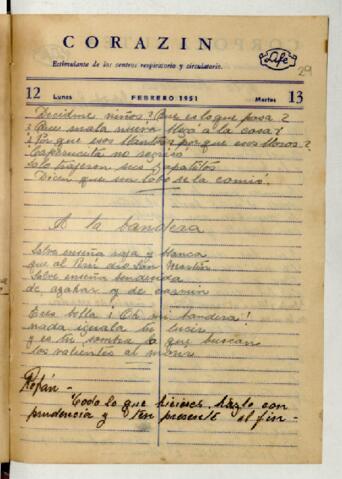 CORAZIN
Estimulante de los centros respiratorio y circulatorio.
Life
29
12 Lunes FEBRERO 1951 Martes 13
Decidme niños? Que es lo que pasa?
¿Que mala nueva llegó a la casa?
¿Porque esos llantos, porque esos lloros?
Caperucita no regresó
Solo trajeron sus zapatitos
Dicen que un lobo se la comió.
A la bandera
Salve enseña roja y blanca
que al Perú dio San Martín
Salve enseña bendecida
de azahar y de carmin
Eres bella! Oh mi bandera!
nada iguala tu lucir
y es tu sombra la que buscan
los valientes al morir
Refrán-
Todo lo que hicieres, hazlo con
prudencia y ten presente el fin-